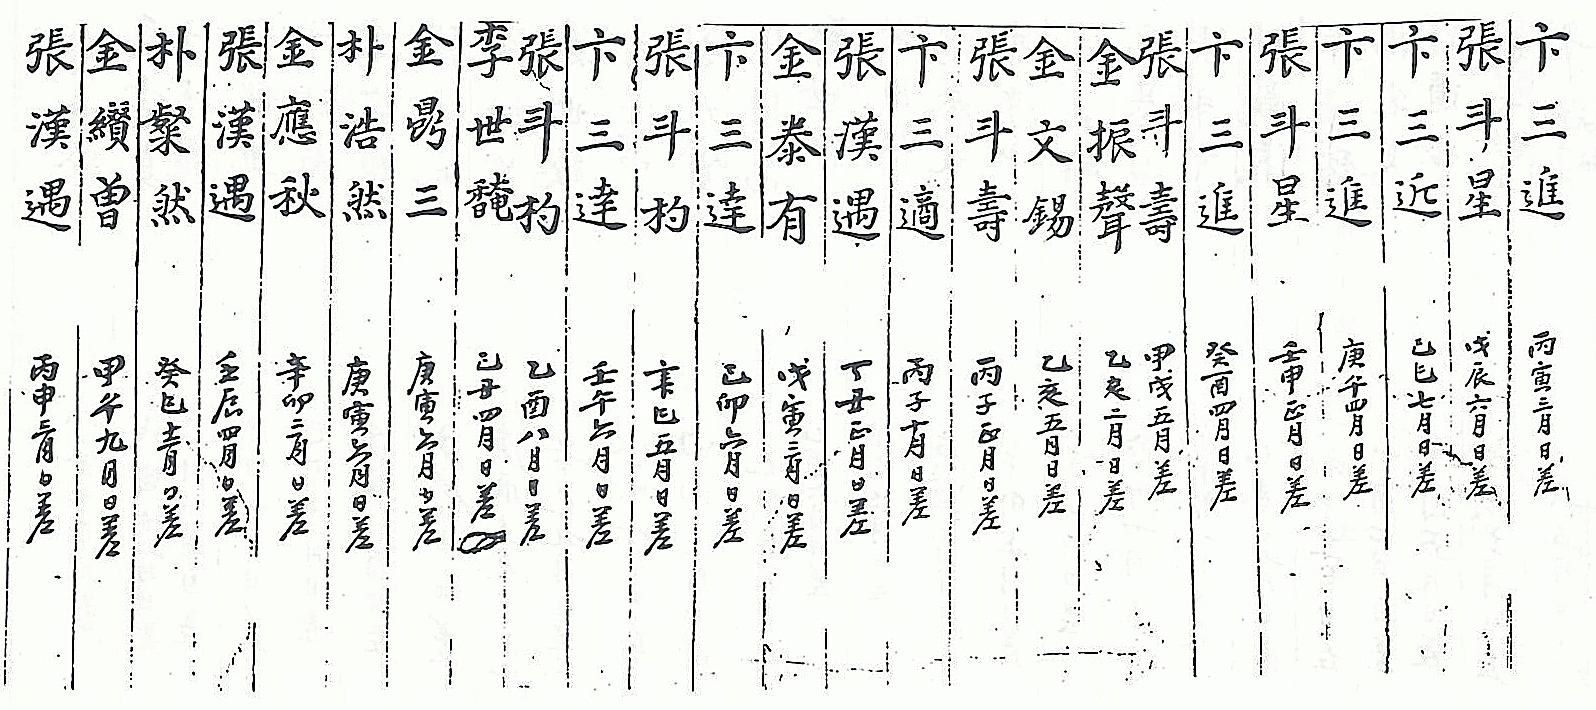 卞三進 丙寅三月日差
張斗星 戊辰六月日差
卞三近 己巳七月日差
卞三進 庚午四月日差
張斗星 壬申正月日差
卞三進 癸酉四月日差
張斗壽 甲戌五月差
金振聲 乙亥二月日差
金文錫 乙亥五月日差
張斗壽 丙子正月日差
卞三適 丙子十月日差
張漢遇 丁丑正月日差
金泰有 戊寅二月日差
卞三達 己卯六月日差
張斗杓 辛巳五月日差
卞三達 壬午六月日差
張斗杓 乙酉八月日差
李世馣 己丑四月日差
金鼎三 庚寅六月日差
朴浩然 庚寅六月日差
金應秋 辛卯二月日差
張漢遇 壬辰四月日差
朴粲然 癸巳十二月日差
金纘曾 甲午九月日差
張漢遇 丙申三月日差